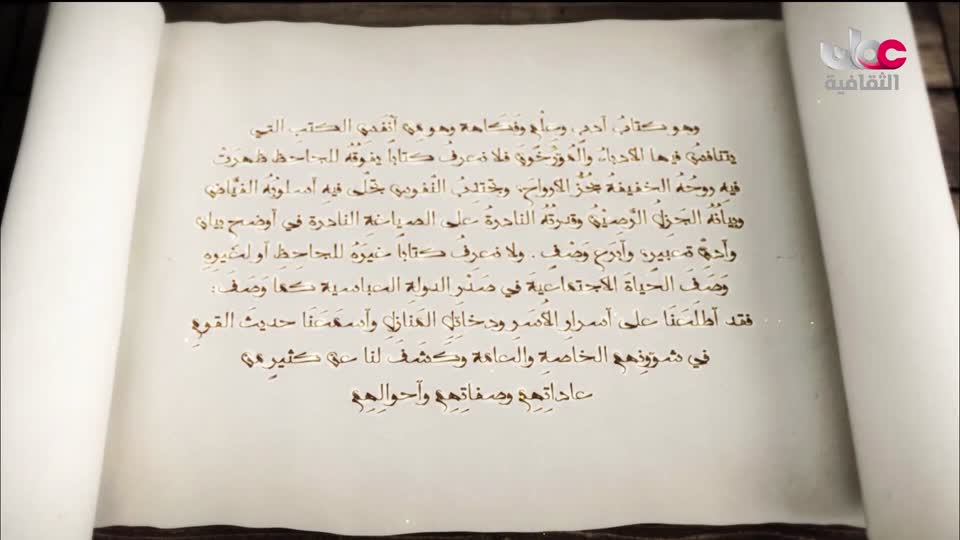 عمان
الثقافية
وهو كتابُ أدبٍ وعلمٍ وفكاهة وهو من أنفس الكتب التي
يتنافسُ فيها الأدباءُ والمؤرخون فلا نعرفُ كتاباً يفوقُهُ للجاحظ ظهرَتْ
فيه روحُهُ الخفيفةُ تهُزُّ الأرواحَ، وتجتذبُ النفوسَ تجلّى فيهِ أسلوبُهُ الفياض
وبيانُهُ الجزلُ الرصينُ وقدرتُهُ النادرةُ على الصياغةِ النادرة في أوضحِ بيانٍ
وأدقِّ تعبيرٍ، وأبرَعِ وَصْفٍ. ولا نعرفُ كتاباً غيرَهُ للجاحِظِ أو لغيرِهِ
وَصَفَ الحياةَ الاجتماعيةَ في صَدْرِ الدولة العباسية كما وَصَفَ:
فقد أطلَعَنَا على أسرارِ الأُسَرِ ودخائِلِ المَنَازِلِ وأسمَعَنَا حديثَ القومِ
في شؤونِهِم الخاصةِ والعامة وكشَفَ لنا عن كثيرٍ من
عاداتِهِم وصفاتِهِم وأحوالِهِم